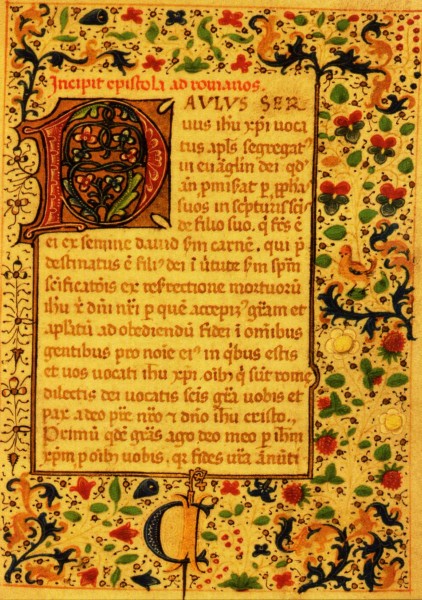 Incipit epistola ad romanos.
PAULUS SER
uus ihu xp̄i uoca
tus ap̄ls segregatꝰ
in eūāgłm dei qđ
an̄ p̄misat ꝑ ꝓphas
suos in scripturis sc̄i
de filio suo. q̇ fc̄s ē
ei ex semine dauid sm̄ carnē. qui p̄
destinatus ē filiꝰ dei ī ūtute sm̄ sp̄m
sc̄ificatōis ex resrectione mortuorū
ihu x̄ dn̄i nr̄i ꝑ quē accepimꝰ grām et
ap̄latū ad obediendū fidei ī omibus
gentibus pro noīe eiꝰ in q̇bus estis
et uos uocati ihu xp̄i. oībꝰ q̇ sūt rome
dilectis dei uocatis sc̄is gr̄a uobis et
pax a deo pr̄e nr̄o & dn̄o ihu cristo.,
Primū qdē grās ago deo meo ꝑ ihm̄
xp̄m ꝓ oībꝰ uobis, qr fides ur̄a ānūti